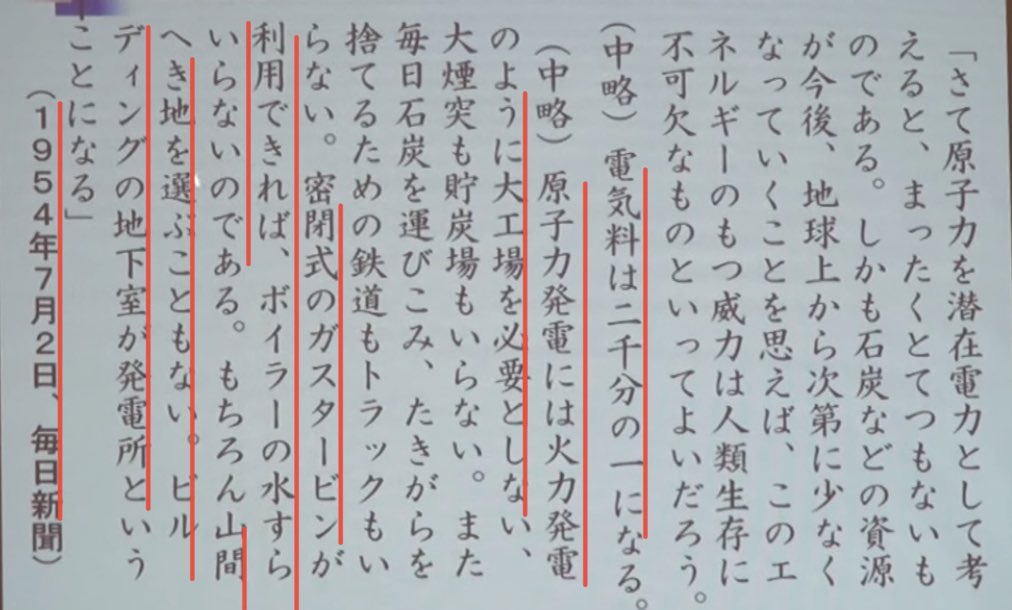 「さて原子力を潜在電力として考
えると、まったくとてつもないも
のである。しかも石炭などの資源
が今後、地球上から次第に少なく
なっていくことを思えば、このエ
ネルギーのもつ威力は人類生存に
不可欠なものといってよいだろう。
(中略)電気料は二千分の一になる。
(中略)原子力発電には火力発電
のように大工場を必要としない、
大煙突も貯炭場もいらない。また
毎日石炭を運びこみ、たきがらを
捨てるための鉄道もトラックもい
らない。密閉式のガスタービンが
利用できれば、ボイラーの水すら
いらないのである。もちろん山間
へき地を選ぶこともない。ビル
ディングの地下室が発電所という
ことになる」
(1954年7月2日、毎日新聞)